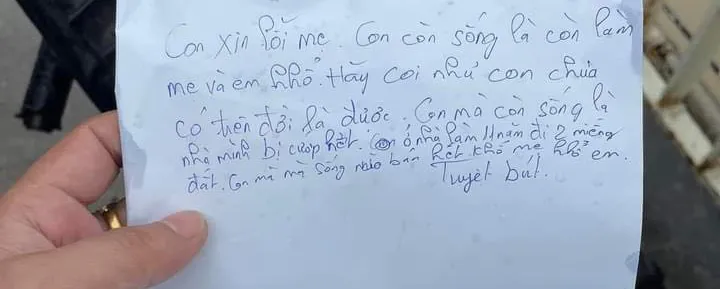 Con xin lỗi mẹ. Con còn sống là còn làm
mẹ và em khổ. Hãy coi như con chưa
có trên đời là được. Con mà còn sống là
nhà mình bị cướp hết. ở nhà làm 11 năm đi 2 miếng
đất. Con mà mà sống bán hết khổ mẹ khổ em.
Tuyệt bút.